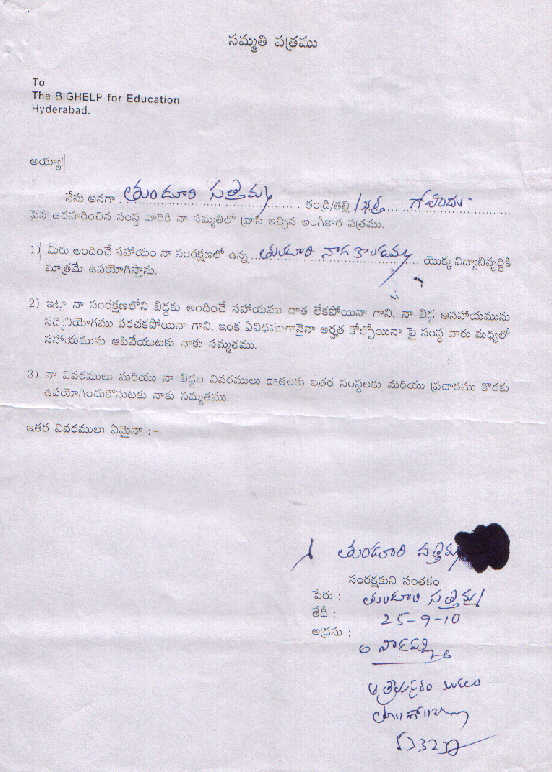 సమ్మతి పత్రము
To
The BIGHELP for Education
Hyderabad.
అయ్యా!
నేను అనగా తుండూరి సత్తెమ్మ తండ్రి/తల్లి/భర్త గోవిందు
పైన ఉదహరించిన సంస్థ వారికి నా సమ్మతితో వ్రాసి ఇచ్చిన అంగీకార పత్రము.
1) మీరు అందించే సహాయం నా సంరక్షణలో ఉన్న తుండూరి నాగ యొక్క విద్యాభివృద్ధికి
మాత్రమే ఉపయోగిస్తాను.
2) ఇట్లా నా సంరక్షణలోని బిడ్డకు అందించే సహాయము దాత లేకపోయినా గాని, నా బిడ్డ ఆసహాయమును
సద్వినియోగము పరచకపోయినా గాని, ఇంక ఏవిధముగానైనా అర్హత కోల్పోయినా పై సంస్థ వారు మధ్యలో
సహాయమును ఆపివేయుటకు నాకు సమ్మతము.
3) నా వివరములు మరియు నా బిడ్డల వివరములు దాతలకు ఇతర సంస్థలకు మరియు ప్రచారము కొరకు
ఉపయోగించుకొనుటకు నాకు సమ్మతము
ఇతర వివరములు ఏమైనా :-
తుండూరి సత్తెమ్మ
సంరక్షకుని సంతకం
పేరు : తుండూరి సత్తెమ్మ
తేదీ : 25-9-10
అడ్రసు :